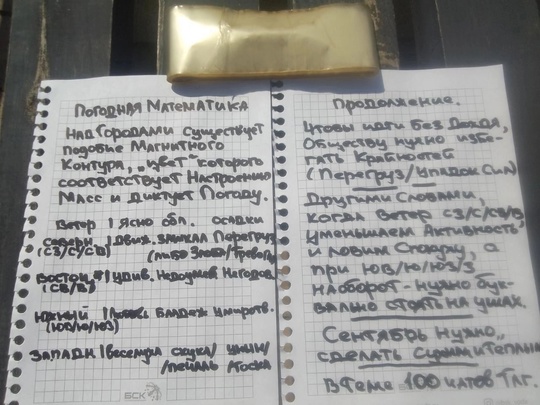 Погодная Математика
Над Городами существует
подобие Магнитного
Контура, „цвет" которого
соответствует Настроению
Масс и диктует Погоду.
Ветер | Ясно обл. осадки
Северн | Движ. Перегруз
(СЗ/С/СВ) (либо Злоба/Тревога)
Восточ | Удив. Недоумен Негодов
(СВ/В)
Южный | Блаж Умиротв.
(ЮВ/Ю/ЮЗ)
Западн | Веселуха скука/ уныни/
/печаль тоска
БСК
Продолжение.
Чтобы идти без Дождя,
Обществу нужно избе-
гать Крайностей
(Перегруз/Упадок Сил)
Другими Словами,
когда Ветер СЗ/С/СВ/В
уменьшаем Активность,
и ловим а
при ЮВ/Ю/ЮЗ/З
наоборот - нужно бук-
вально стоять на ушах.
Сентябрь нужно
сделать и теплым
в теме 100 чатов Тлг.
БСК